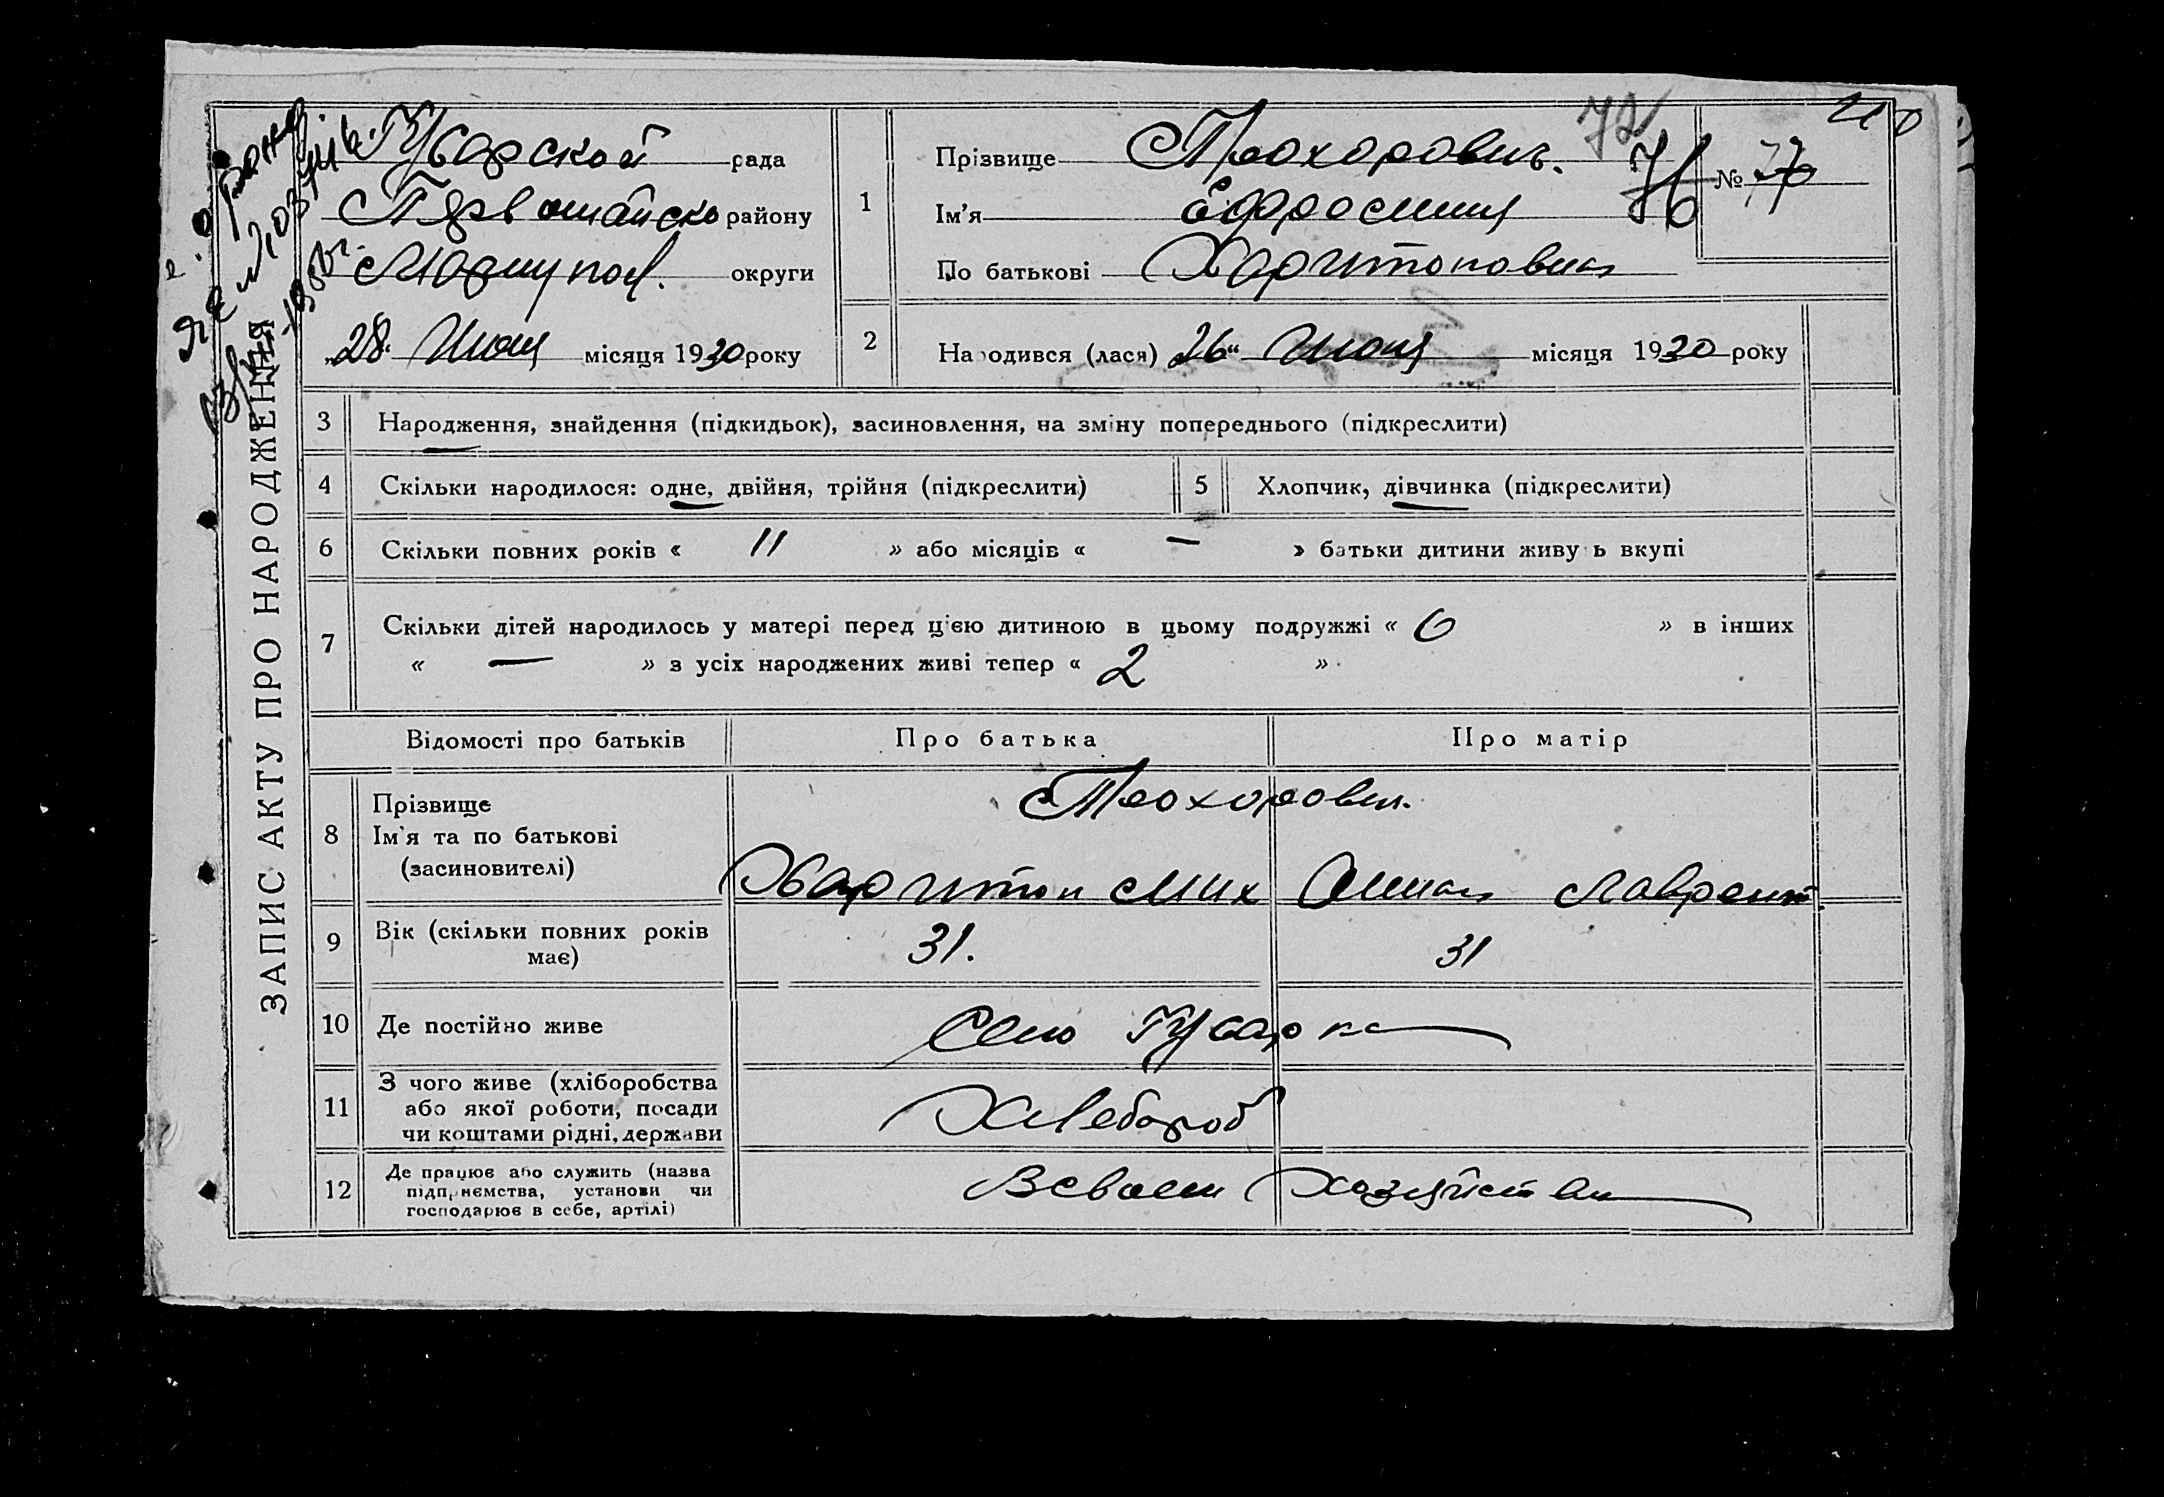 ЗАПИС АКТУ ПРО НАРОДЖЕННЯ
Гусарской рада
Первомайско району
Мариупол. округи
„28“ Июня місяця 1930 року
1
Прізвище Прохорович.
Ім’я Ефросиния
По батькові Харитоновна
72
76
№ 77
2
Народився (лася) 26“ Июня місяця 1930 року
3 Народження, знайдення (підкидьок), засиновлення, на зміну попереднього (підкреслити)
4 Скільки народилося: одне, двійня, трійня (підкреслити)
5 Хлопчик, дівчинка (підкреслити)
6 Скільки повних років « 11 » або місяців « — » батьки дитини живуть вкупі
7 Скільки дітей народилось у матері перед цією дитиною в цьому подружжі « 6 » в інших
« — » з усіх народжених живі тепер « 2 »
Відомості про батьків Про батька Про матір
8 Прізвище
Ім’я та по батькові
(засиновителі)
Прохорович.
Харитон Мих Анна Лаврент.
9 Вік (скільки повних років
має)
31. 31
10 Де постійно живе Село Гусарка
11 З чого живе (хліборобства
або якої роботи, посади
чи коштами рідні, держави
Хлебороб
12 Де працює або служить (назва
підприємства, установи чи
господарює в себе, артілі)
В своем Хозяйстве